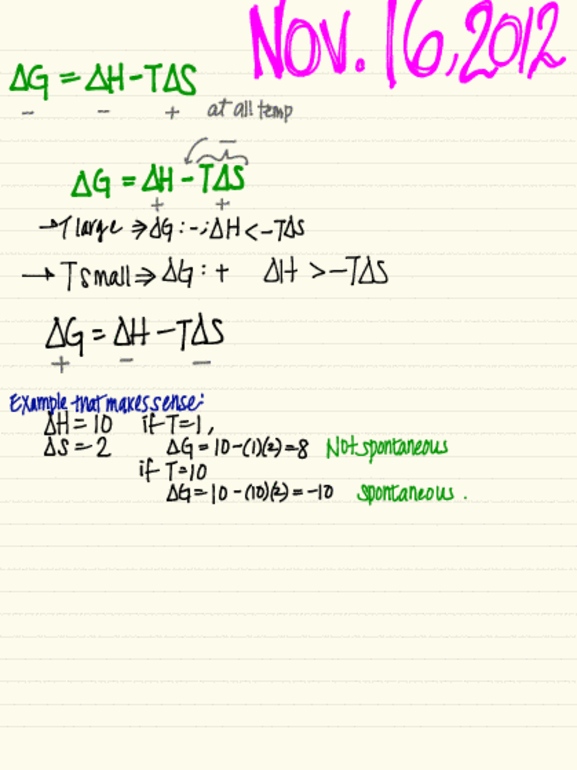 Nov. 16, 2012
ΔG = ΔH - TΔS
- - + at all temp
-
ΔG = ΔH - TΔS
+ +
→ T large ⇒ ΔG : - ; ΔH < -TΔS
→ T small ⇒ ΔG : + ΔH > -TΔS
ΔG = ΔH - TΔS
+ - -
Example that makes sense:
ΔH = 10 if T=1,
ΔS = 2 ΔG = 10 - (1)(2) = 8 Not spontaneous
if T=10
ΔG = 10 - (10)(2) = -10 spontaneous.